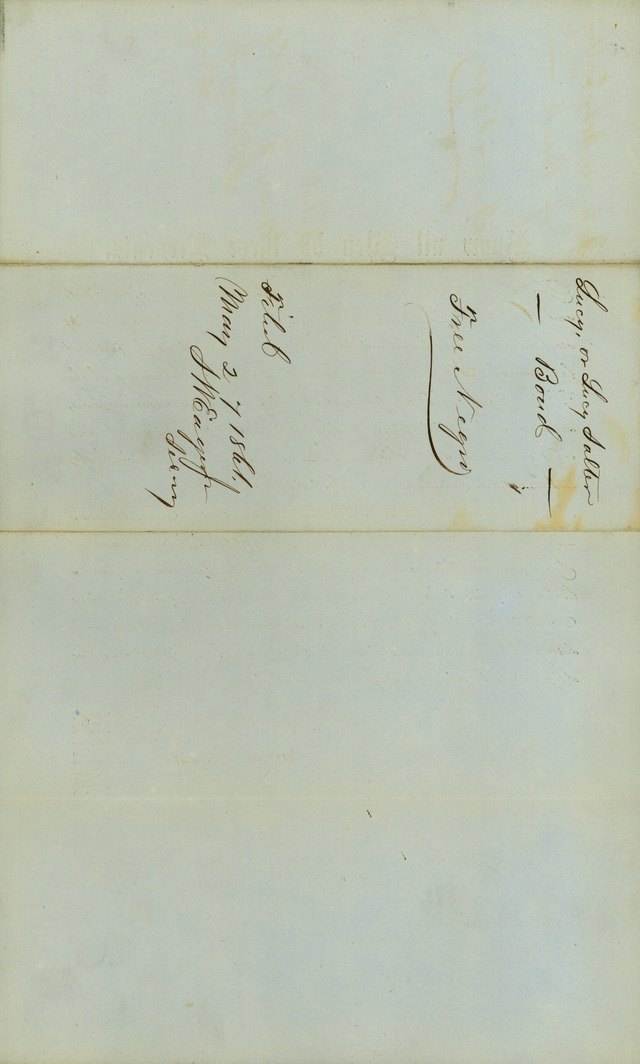 Lucy, or Lucy Salter
— Bond —
Free Negro
Filed
May 27 1861.